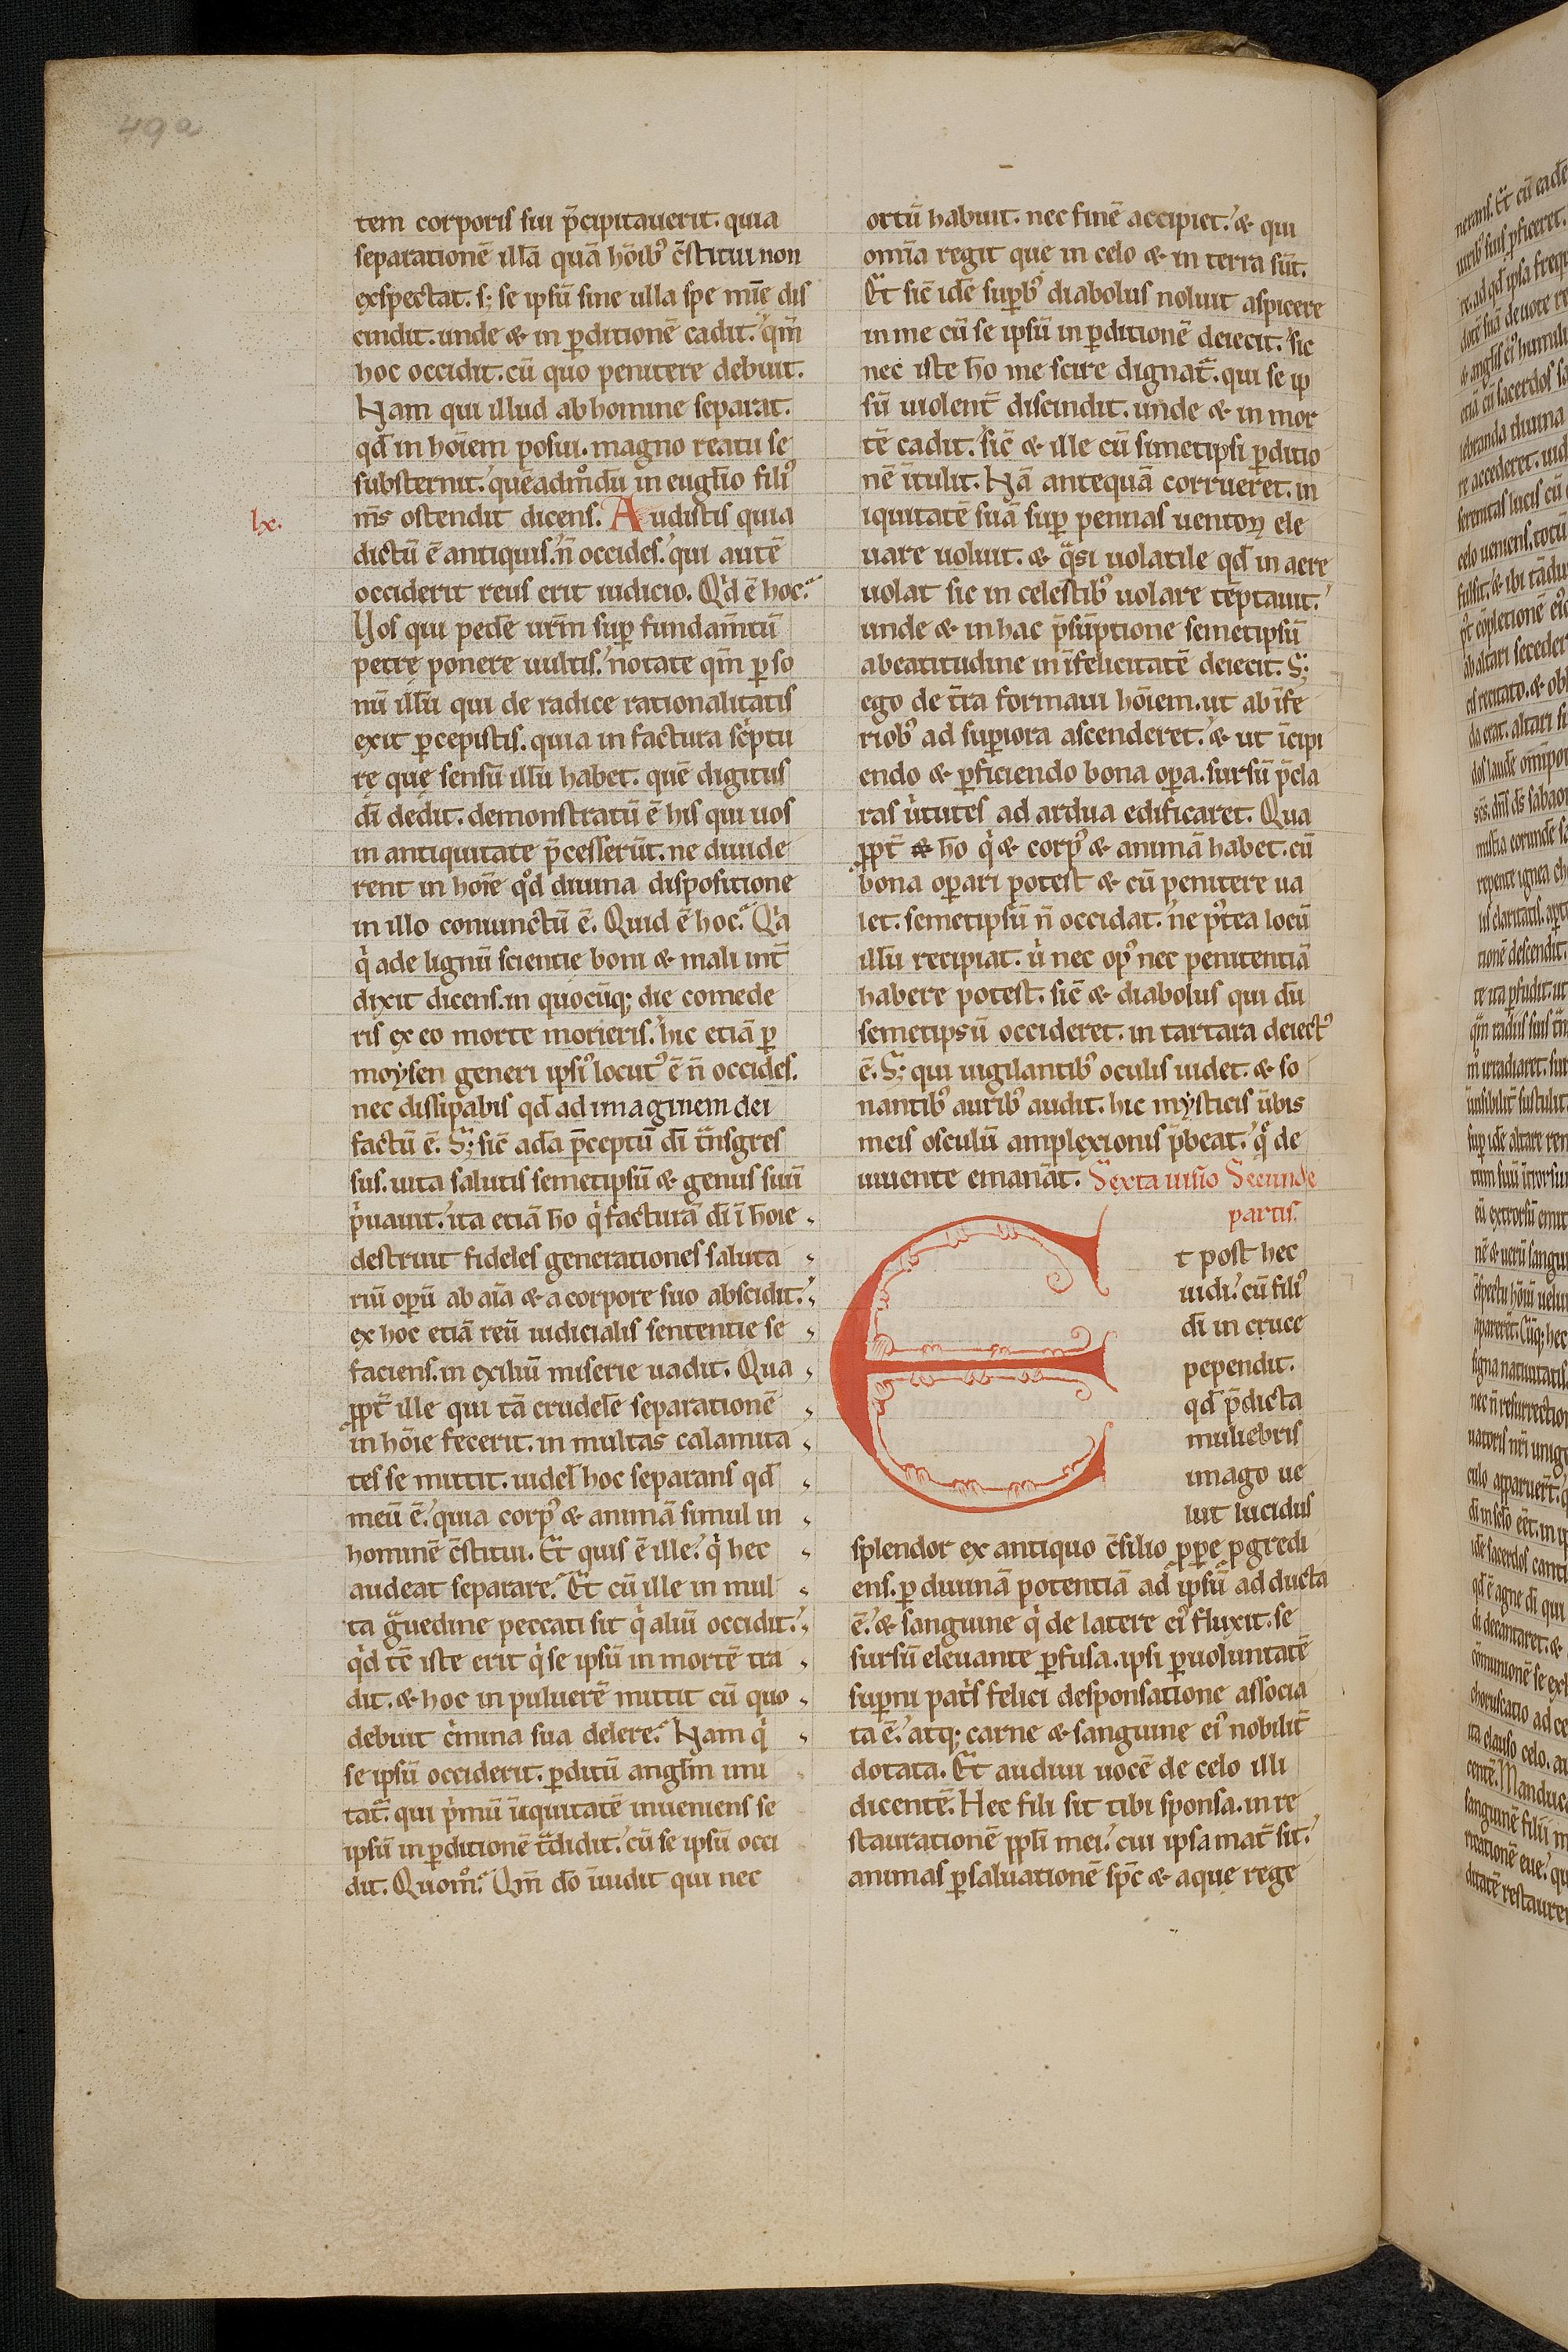 49a
tem corporis sui p̄cipitauerit. quia
separationē illā quā hōib⁹ c̄stitui non
exspectat. s; se ipsū sine ulla spe mīe dis
cindit. unde & in ꝑditionē cadit. qm̄
hoc occidit. cū quo penitere debuit.
Nam qui illud ab homine separat.
qd̄ in hōiem posui. magno reatu se
substernit. quēadm̊dū in euglio fili⁹
m̄s ostendit dicens. Audistis quia
lx.
dictū ē antiquis. n̄ occides. qui autē
occiderit reus erit iudicio. Qd ē hoc.
Vos qui pedē urm̄ suꝑ fundam̄tū
petrę ponere uultis. notate qm̄ ꝑ so
nū illū qui de radice rationalitatis
exit ꝑcepistis. quia in factura sc̄ptu
rę quę sensū illū habet. quē digitus
dī dedit. demonstratū ē his qui uos
in antiquitate p̄cesserūt. ne diuide
rent in hoīe qd diuina dispositione
in illo coniunctū ē. Quid ē hoc. Qa
q̇ ade lignū scientie boni & mali int̄
dixit dicens. in quocūq; die comede
ris ex eo morte morieris. hic etiā ꝑ
moysen generi ipsi⁹ locut⁹ ē n̄ occides.
nec dissipabis qd̄ ad imaginem dei
factū ē. S; sic̄ adā p̄ceptū dī t̄nsgres
sus. uita salutis semetipsū & genus suū
ṗuauit. ita etiā h̄o q̇ facturā dī ī hoīe
destruit fideles generationes saluta
riū oꝑū ab aīa & a corpore suo abscidit.
ex hoc etiā reū iudicialis sententie se
faciens. in exiliū miserie uadit. Qua
ꝓpt̄ ille qui tā crudelē separationē
in hōie fecerit. in multas calamita
tes se mittit. uidel̄ hoc separans qd̄
meū ē. quia corp⁹ & animā simul in
hominē c̄stitui. Et quis ē ille. q̇ hec
audeat separare. Et cū ille in mul
ta g̃uedine peccati sit q̇ aliū occidit.
q̇d tē iste erit q̇ se ipsū in mortē tra
dit. & hoc in puluerē mittit cū quo
debuit ċmina sua delere. Nam q̇
se ipsū occiderit. ꝑditū anglm̄ imi
tat̃. qui ṗmū īiquitatē inueniens se
ipsū in ꝑditionē t̃didit. cū se ipsū occi
dit. Quom̊. Qm̄ dō īuidit qui nec
ortū habuit. nec finē accipiet. & qui
omīa regit que in celo & in terra sūt.
Et sic̄ idē suꝑb⁹ diabolus noluit aspicere
in me cū se ipsū in ꝑditionē deiecit. sic
nec iste h̄o me scire dignat̃. qui se ip
sū uiolent̄ discindit. unde & in mor
tē cadit. sic̄ & ille cū simetipsi ꝑditio
nē ītulit. Nā antequā corrueret. in
iquitatē suā suꝑ pennas uentoꝝ ele
uare uoluit. & q̃si uolatile qd̄ in aere
uolat sic in celestib⁹ uolare tēptauit.
unde & in hac p̄sūptione semetipsū
a beatitudine in īfelicitatē deiecit. S;
ego de t̄ra formaui hōiem. ut ab īfe
riob⁹ ad suꝑiora ascenderet. & ut īcipi
endo & ꝑficiendo bona oꝑa. sursū p̄cla
ras u̇tutes ad ardua edificaret. Qua
ꝓpt̄ & h̄o q̇ & corp⁹ & animā habet. cū
bona oꝑari potest & cū penitere ua
let. semetipsū n̄ occidat. ne p⁹tea locū
illū recipiat. u̇ nec op⁹ nec penitentiā
habere potest. sic̄ & diabolus qui dū
semetipsū occideret. in tartara deiect⁹
ē. S; qui uigilantib⁹ oculis uidet. & so
nantib⁹ aurib⁹ audit. hic mysticis ūbis
meis osculū amplexionis p̄beat. q̃ de
uiuente emanāt. Sexta uisio Secunde
partis.
Et post hec
uidi. cū fili⁹
dī in cruce
pependit.
qd̄ p̄dicta
muliebris
imago ue
lut lucidus
splendor ex antiquo c̄silio ꝓꝑe ꝓgredi
ens. ꝑ diuinā potentiā ad ipsū adducta
ē. & sanguine q̇ de latere ei⁹ fluxit. se
sursū eleuante ꝑfusa. ipsi ꝑ uoluntatē
suꝑni pat̄s felici desponsatione associa
ta ē. atq; carne & sanguine ei⁹ nobilit̄
dotata. Et audiui uocē de celo illi
dicentē. Hec fili sit tibi sponsa. in re
staurationē ppl̄i mei. cui ipsa mat̄ sit.
animas ꝑ saluationē sp̄c & aque rege